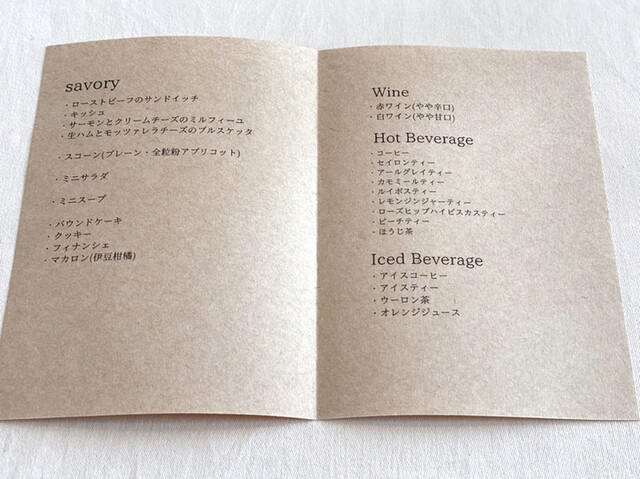 savory
・ローストビーフのサンドイッチ
・キッシュ
・サーモンとクリームチーズのミルフィーユ
・生ハムとモッツァレラチーズのブルスケッタ
・スコーン(プレーン・全粒粉アプリコット)
・ミニサラダ
・ミニスープ
・パウンドケーキ
・クッキー
・フィナンシェ
・マカロン(伊豆柑橘)
Wine
・赤ワイン(やや辛口)
・白ワイン(やや甘口)
Hot Beverage
・コーヒー
・セイロンティー
・アールグレイティー
・カモミールティー
・ルイボスティー
・レモンジンジャーティー
・ローズヒップハイビスカスティー
・ピーチティー
・ほうじ茶
Iced Beverage
・アイスコーヒー
・アイスティー
・ウーロン茶
・オレンジジュース